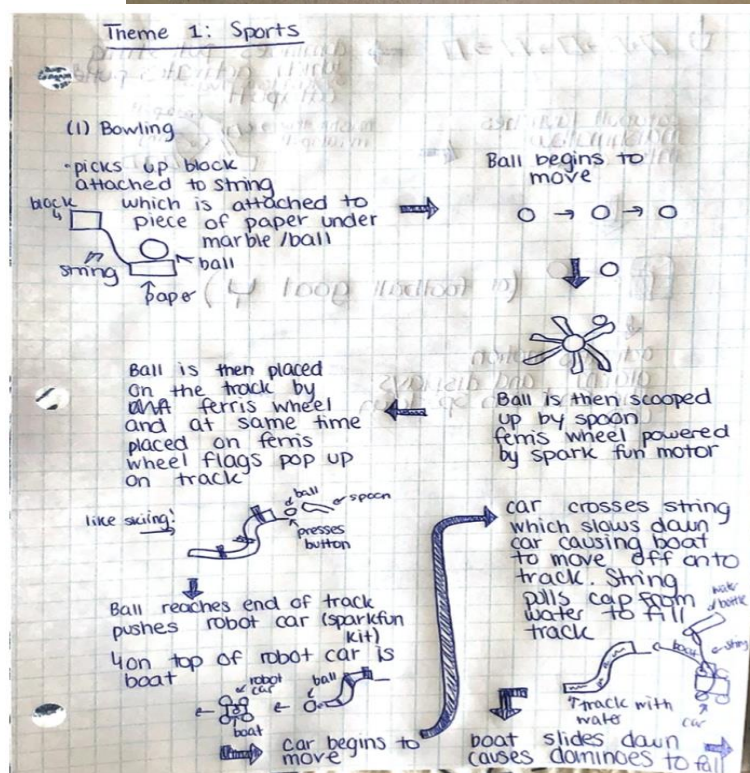 Theme 1: Sports
(1) Bowling
•picks up block
attached to string
which is attached to
piece of paper under
marble/ball
block
string
ball
paper
Ball begins to
move
Ball is then scooped
up by spoon
ferris wheel powered
by spark fun motor
Ball is then placed
on the track by
ferris wheel
and at same time
placed on ferris
wheel flags pop up
on track
like skiing!
ball
spoon
presses
button
Ball reaches end of track
pushes robot car (sparkfun
kit)
on top of robot car is
boat
robot
car
boat
ball
car begins to
move
car crosses string
which slows down
car causing boat
to move off onto
track. String
pulls cap from
water to fill
track
water
bottle
string
boat
car
track with
water
boat slides down
causes dominoes to fall